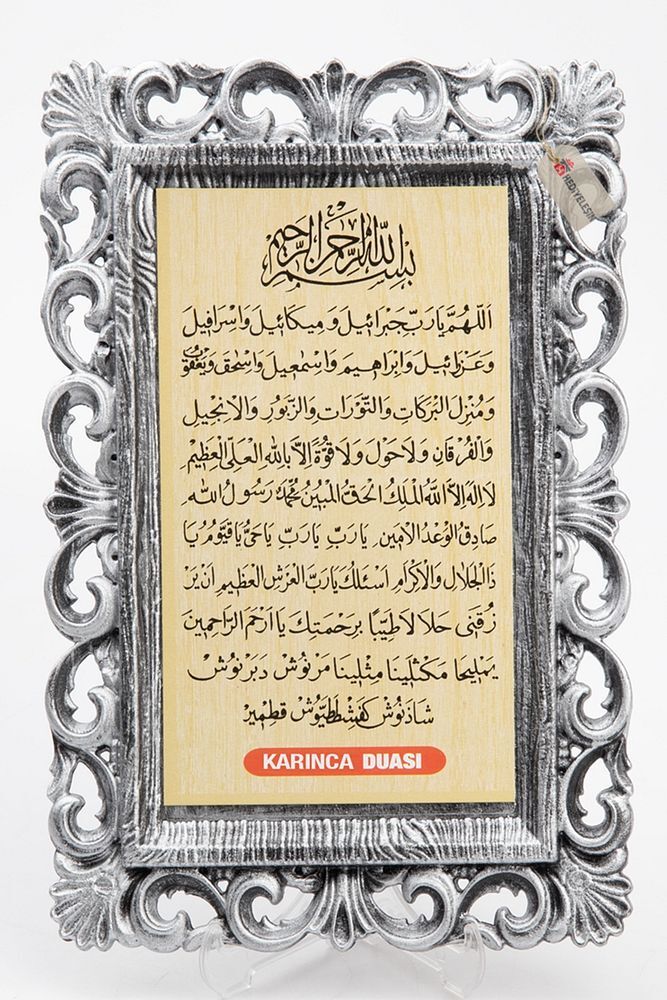 بسم الله الرحمن الرحيم
اَللّٰهُمَّ يَارَبَّ جَبْرَائِيلَ وَ مِيكَائِيلَ وَاِسْرَافِيلَ
وَ عَزْرَائِيلَ وَاِبْرَاهِيمَ وَاِسْمٰعِيلَ وَاِسْحٰقَ وَيَعْقُوبَ
وَمُنْزِلَ الْبَرَكَاتِ وَالتَّوْرَاتِ وَالزَّبُورِ وَالْاِنْجِيلِ
وَالْفُرْقَانِ وَلَاحَوْلَ وَلَا قُوَّةَ اِلَّا بِاللّٰهِ الْعَلِىِّ الْعَظِيمِ
لَااِلٰهَ اِلَّا اللّٰهُ الْمَلِكُ الْحَقُّ الْمُبِينُ مُحَمَّدٌ رَسُولُ اللّٰهِ
صَادِقُ الْوَعْدُ الْاَمِينِ يَارَبِّ يَارَبِّ يَاحَىُّ يَاقَيُّومُ يَا
ذَاالْجَلَالِ وَالْاِكْرَامِ اَسْئَلُكَ يَارَبَّ الْعَرْشِ الْعَظِيمِ اَنْ يَرْ
زُقَنِى حَلَالًا طَيِّبًا بِرَحْمَتِكَ يَا اَرْحَمَ الرَّاحِمِينَ
يَمْلِيخَا مَكْثَلِينَا مِثْلِينَا مَرْنُوشْ دَبَرْنُوشْ
شَاذَنُوشْ كَفَشْطَطَيُّوشْ قِطْمِيرْ
KARINCA DUASI
HEDİYELEŞİN